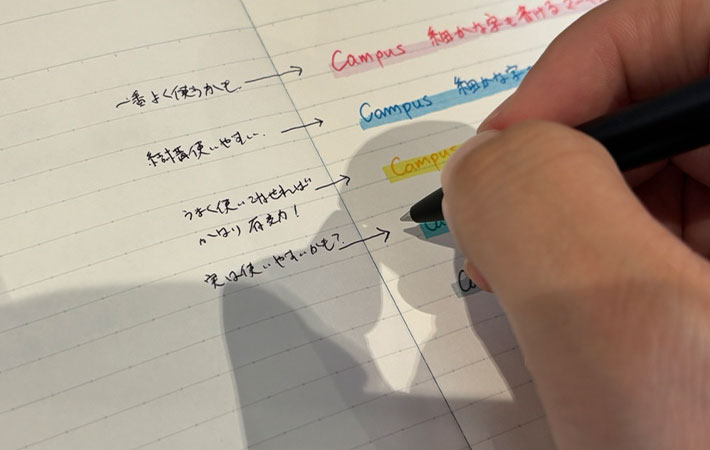 Campus 細かな字も書けるマー
一番よく使うかも
Campus 細かな字
結構使いやすい
Campus
うまく使いこなせれば
かなり有力!
実は使いやすいかも?